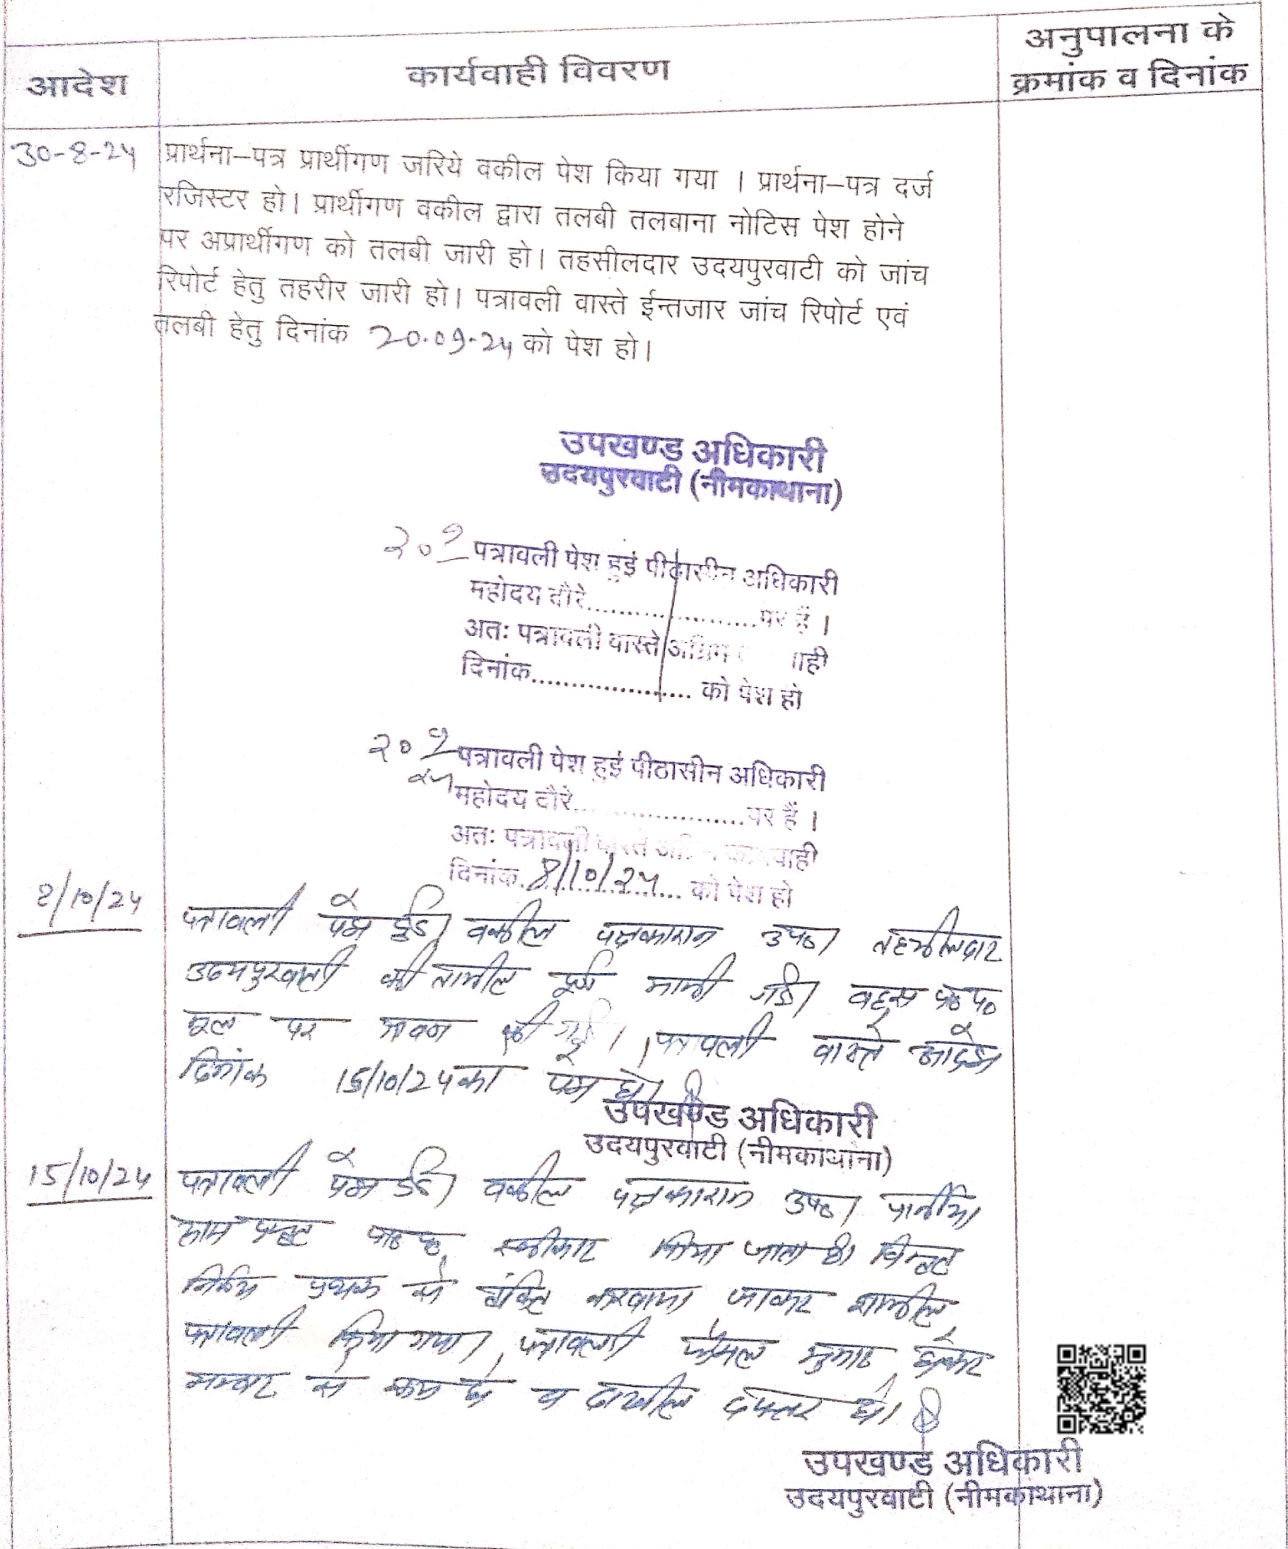 आदेश
कार्यवाही विवरण
अनुपालना के
क्रमांक व दिनांक
30-8-24
प्रार्थना-पत्र प्रार्थीगण जरिये वकील पेश किया गया । प्रार्थना-पत्र दर्ज
रजिस्टर हो। प्रार्थीगण वकील द्वारा तलबी तलबाना नोटिस पेश होने
पर अप्रार्थीगण को तलबी जारी हो। तहसीलदार उदयपुरवाटी को जांच
रिपोर्ट हेतु तहरीर जारी हो। पत्रावली वास्ते ईन्तजार जांच रिपोर्ट एवं
तलबी हेतु दिनांक 20.09.24 को पेश हो।
उपखण्ड अधिकारी
उदयपुरवाटी (नीमकाथाना)
20 9 पत्रावली पेश हुई पीठासीन अधिकारी
महोदय दौरे....................पर हैं ।
अतः पत्रावली वास्ते अग्रिम
दिनांक................... को पेश हो
20 9 पत्रावली पेश हुई पीठासीन अधिकारी
24 महोदय दौरे....................पर हैं ।
अतः पत्रावली वास्ते
दिनांक. 8/10/24 ... को पेश हो
8/10/24
पत्रावली पेश हुई। वकील पक्षकारान उप०। तहसीलदार
उदयपुरवाटी की तामील पूर्ण मानी गई। बहस प्रा०प०
मूल पर श्रवण की गई। पत्रावली वास्ते आदेश
दिनांक 15/10/24 को पेश हो।
उपखण्ड अधिकारी
उदयपुरवाटी (नीमकाथाना)
15/10/24
पत्रावली पेश हुई। वकील पक्षकारान उप०।
स्वीकार किया जाता है। विस्तृत
निर्णय पृथक से करवाया जाकर शामील
पत्रावली किया गया। पत्रावली फैसल शुमार होकर
नम्बर से कम हो व दाखील दफ्तर हो।
उपखण्ड अधिकारी
उदयपुरवाटी (नीमकाथाना)